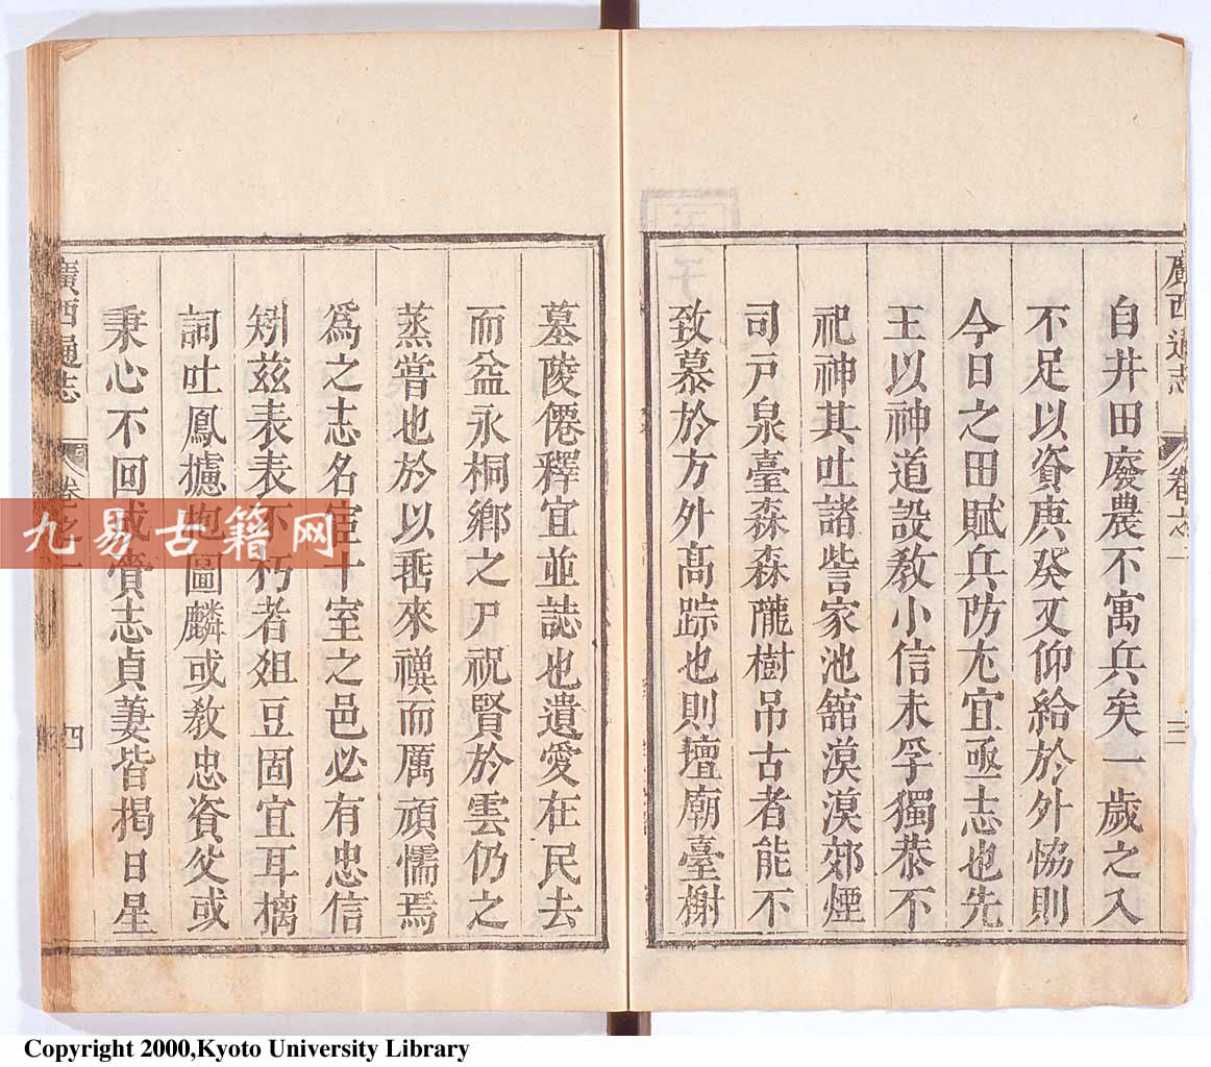 廣西通志
卷之一
三
自井田廢農不寓兵矣一歲之入
不足以資庚癸又仰給於外恊則
今日之田賦兵防尢宜亟志也先
王以神道設教小信未孚獨恭不
祀神其吐諸訾家池舘漠漠郊煙
司戸泉臺森森隴樹吊古者能不
致慕於方外髙踪也則壇廟臺榭
墓陵僊釋宜並誌也遺愛在民去
而益永桐鄉之尸祝賢於雲仍之
蒸嘗也於以埀來禩而厲頑懦焉
爲之志名宦十室之邑必有忠信
矧兹表表不朽者俎豆固宜耳摛
詞吐鳳攄抱圖麟或敎忠資父或
秉心不回或賫志貞萋皆揭日星
廣西通志
卷之一
四
九易古籍网
Copyright 2000,Kyoto University Library